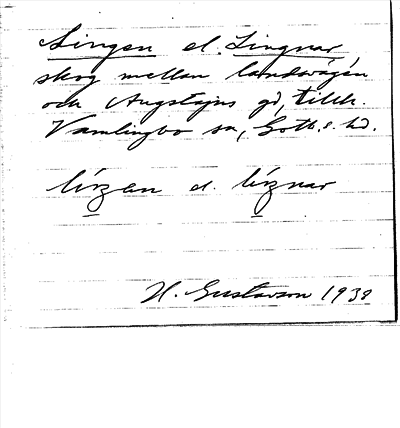 Lingen el. Lingnar
skog mellan landsvägen
och Augstajns gd, tillh.
Vamlingbo sn, Gotl. s. hd.
el.
H. Gustavson 1938